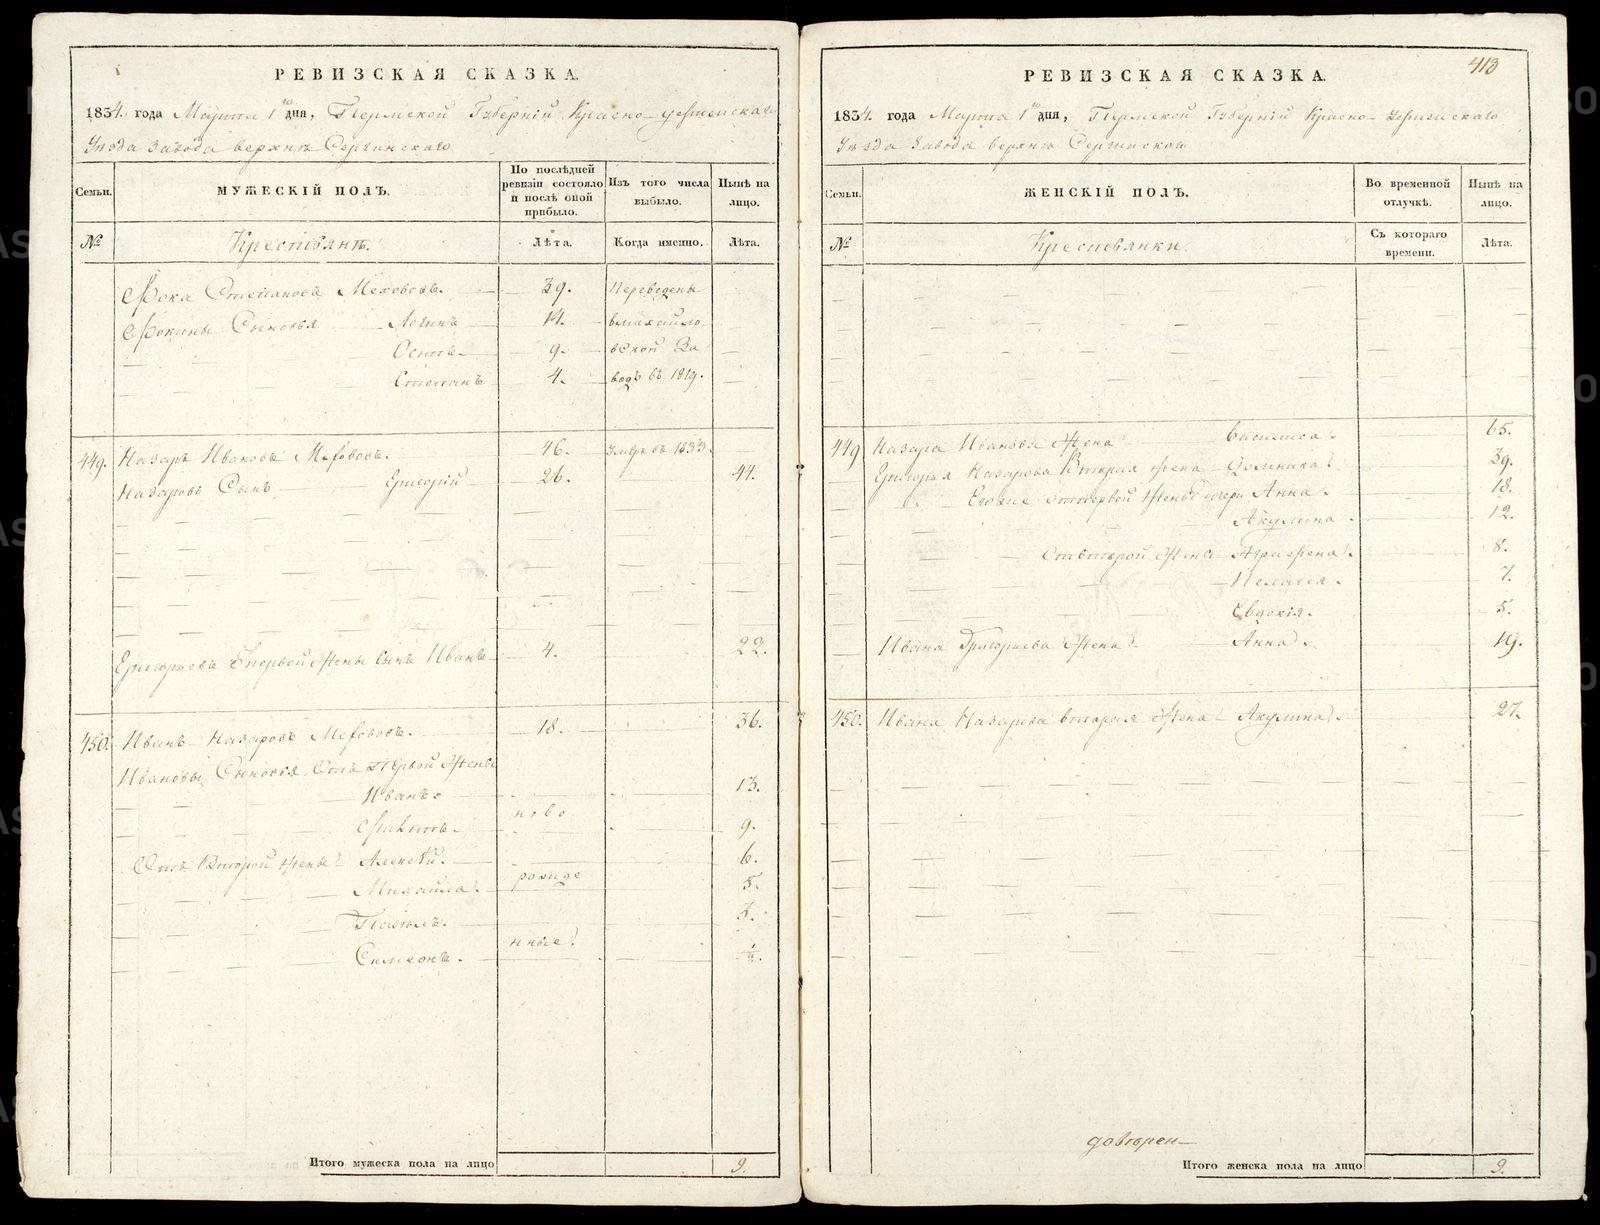 РЕВИЗСКАЯ СКАЗКА.
1834. года Марта 1го дня, Пермской Губерніи Красно-уфимскаго
Уѣзда Завода верхнѣ Сергинскаго
Семьи.
МУЖЕСКІЙ ПОЛЪ.
По послѣдней ревизіи состояло и послѣ оной прибыло.
Изъ того числа выбыло.
Нынѣ на лицо.
№
Крестьянѣ.
Лѣта.
Когда именно.
Лѣта.
Фока Степановъ 39. Переведены
Фокины Сыновья Логинъ 14. в михайло
Осипъ 9. вской За
Степанъ 4. водъ въ 1819.
449. Назаръ Ивановъ 46. Умеръ въ 1833.
Назаровъ Сынъ Григорій 26. 44.
Григорьева Спервой жены сынъ Иванъ 4. 22.
450. Иванъ Назаровъ 18. 36.
Ивановы Сыновья Отъ Первой жены
Иванъ 13.
ново
9.
Отъ Второй жены Алексѣй. 6.
рожде
Михайла. 5.
Павелъ. 3.
нные
Симеонъ.
Итого мужеска пола на лицо 9.
413
РЕВИЗСКАЯ СКАЗКА.
1834. года Марта 1го дня, Пермской Губерніи Красно-Уфимскаго
Уѣзда Завода верхнѣ Сергинскаго
Семьи.
ЖЕНСКІЙ ПОЛЪ.
Во временной отлучкѣ.
Нынѣ на лицо.
№
Крестьянки.
Съ котораго времени.
Лѣта.
449 Назара Иванова Жена Василиса. 65.
Григорья Назарова Вторая жена Домника 39.
Его же отпервой жены дочери Анна. 18.
Акулина. 12.
Отвторой жены Аграфена. 8.
Пелагея. 7.
Евдокія. 5.
Ивана Григорьева Жена Анна. 19.
450. Ивана Назарова вторая жена Акулина. 27.
Итого женска пола на лицо 9.